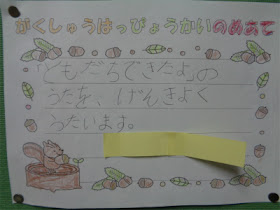 がくしゅうはっぴょうかいのめあて
「ともだちできたよ」の
うたを、げんきよく
うたいます。